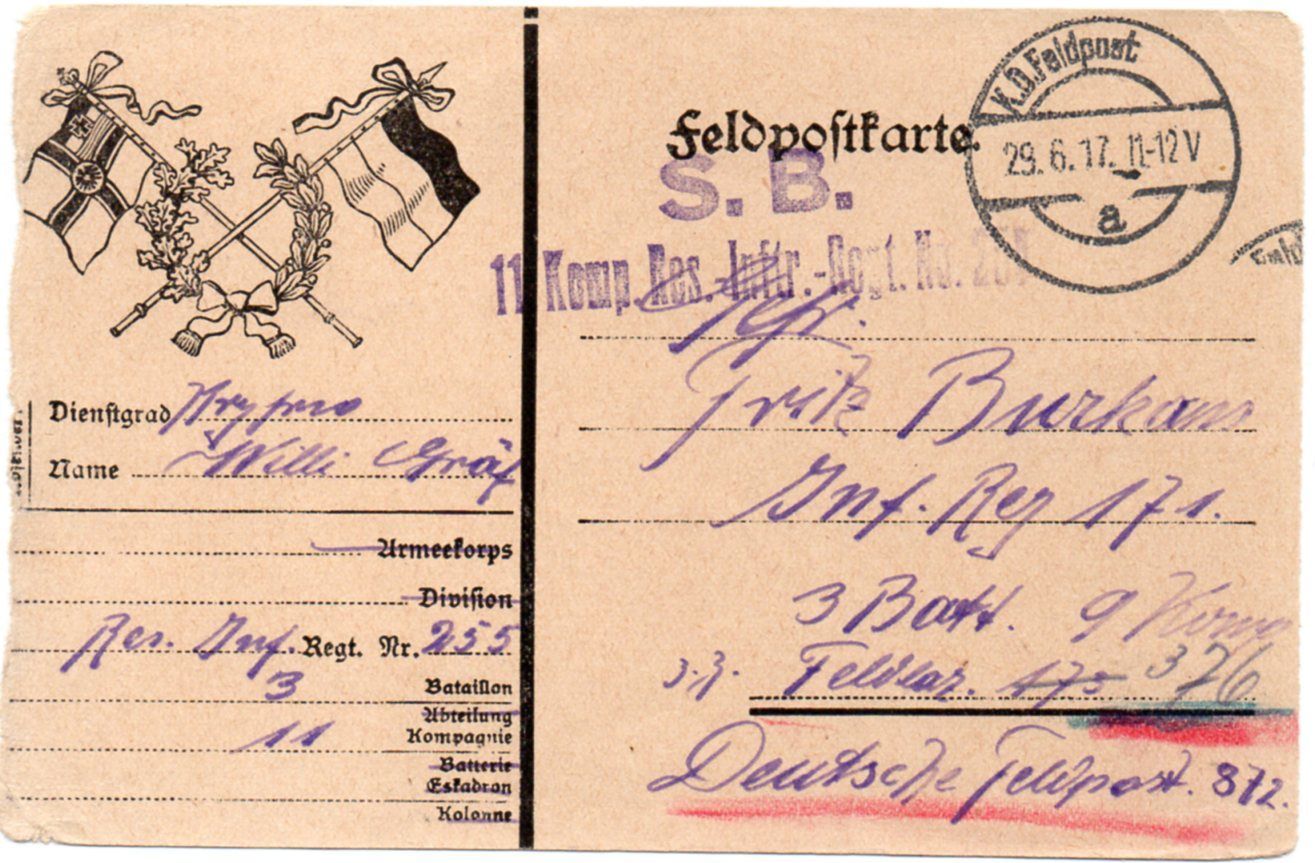 K.D. Feldpost
29.6.17. 11-12V
a
Feldpostkarte.
S. B.
11 Komp. Res.-Inftr.-Regt. No.
Gefr.
Fritz
Inf. Reg 171.
3 Batt. 9 Komp
z.Z. Feldlaz. 175 376
Deutsche Feldpost. 872.
Dienstgrad
Name Willi Gräf
Armeekorps
Division
Res. Inf. Regt. Nr. 255
3 Bataillon
Abteilung
11 Kompagnie
Batterie
Eskadron
Kolonne